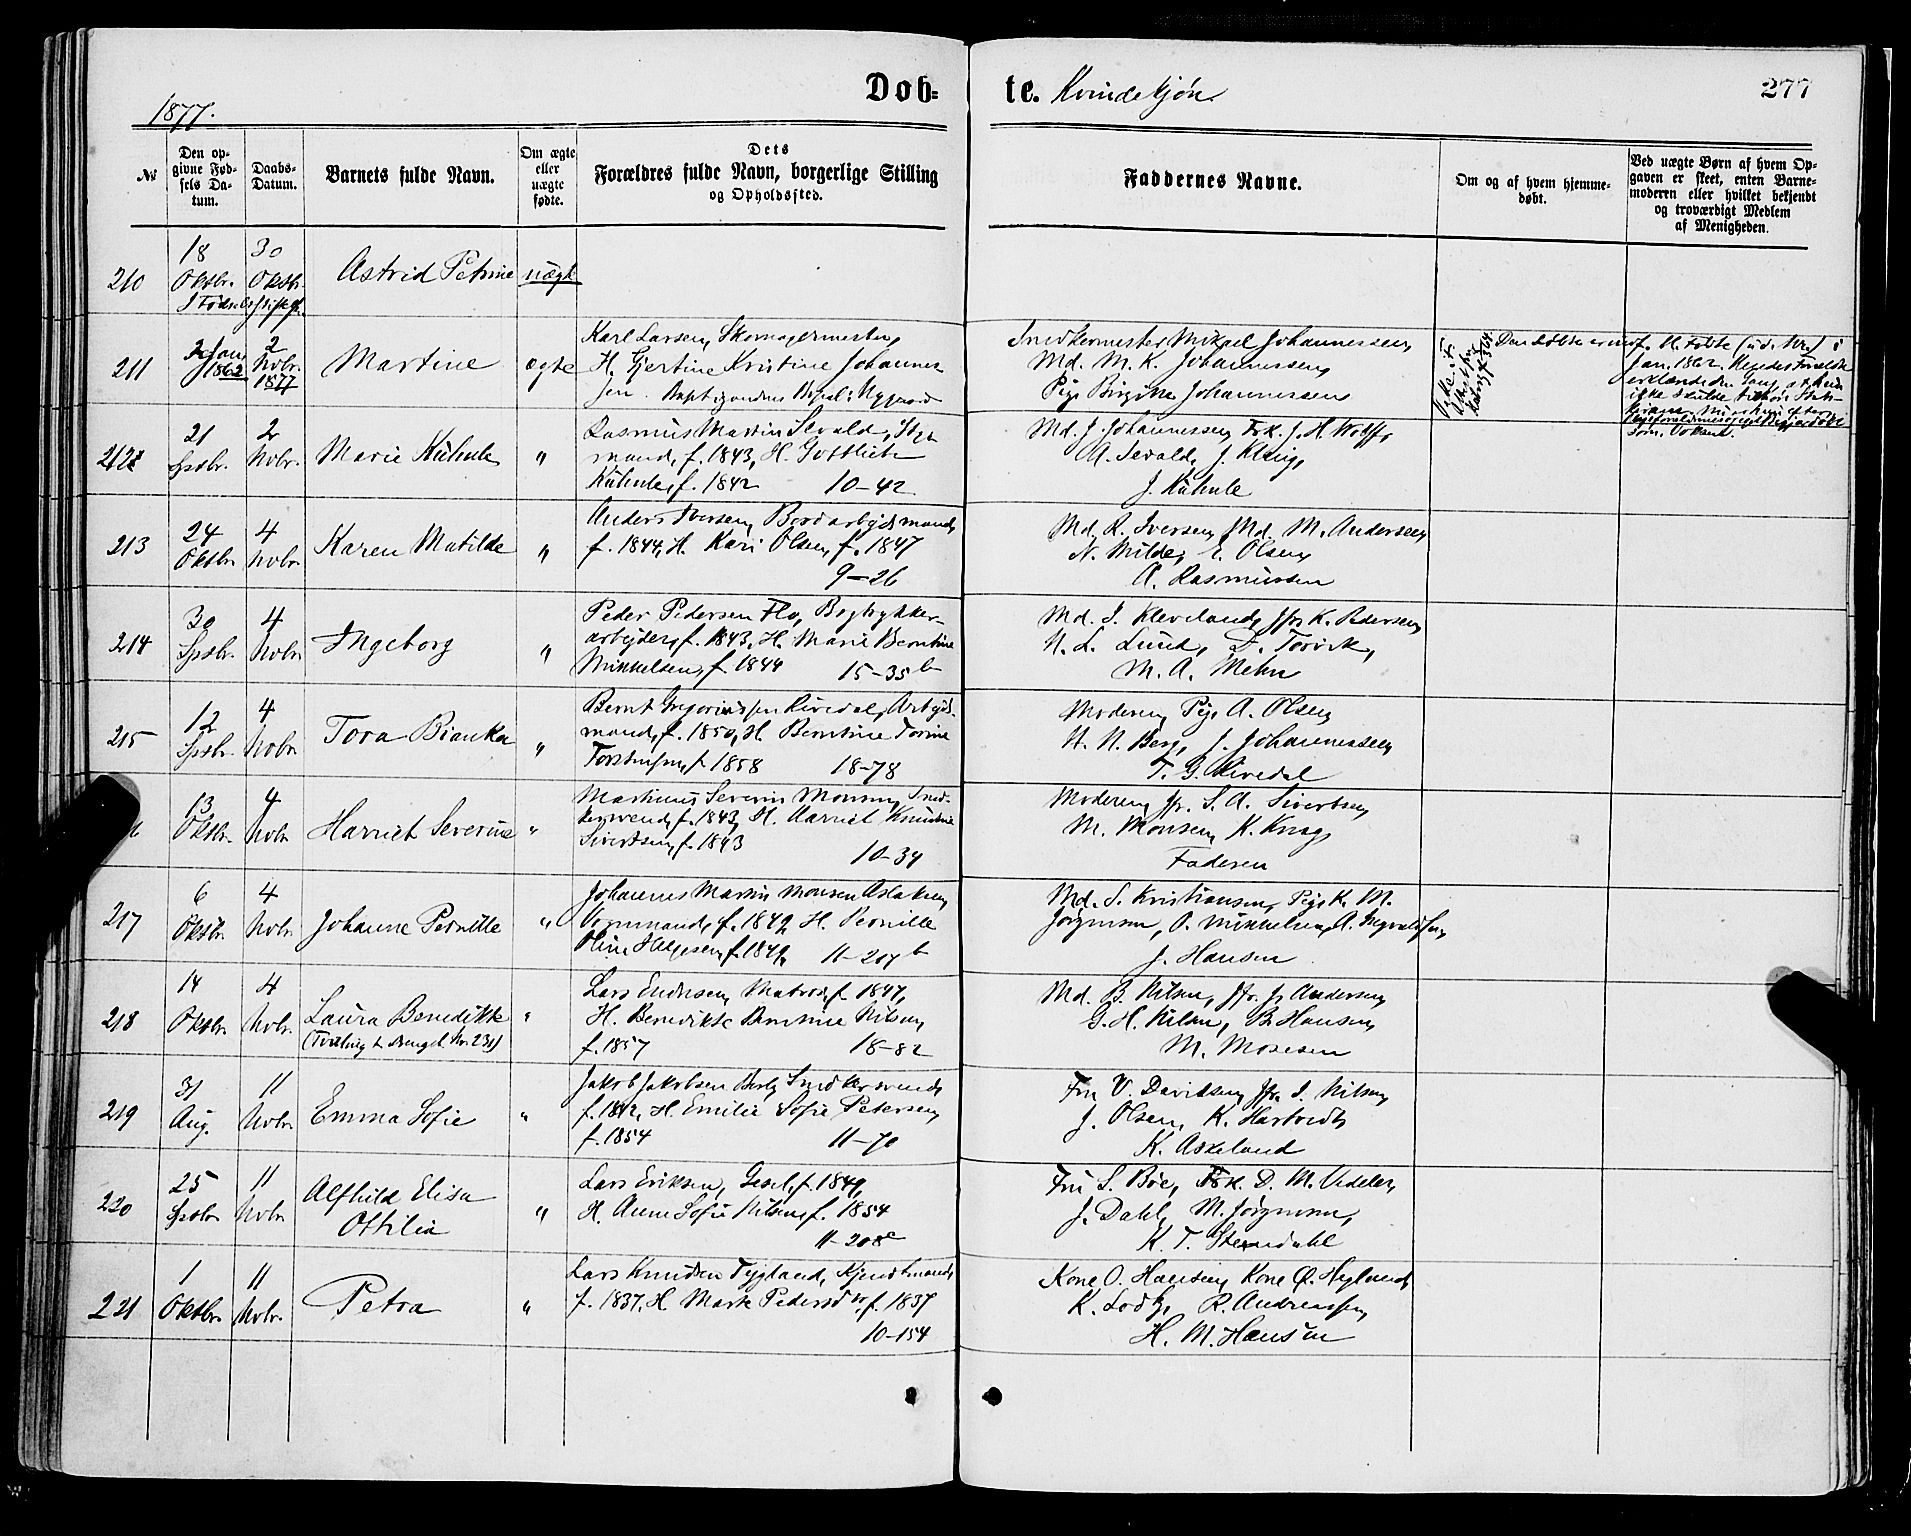 Døb= te. Kvindekjøn.
277
1877.
№
Den op-
givne Fød-
sels Da-
tum.
Daabs-
Datum.
Barnets fulde Navn.
Om ægte
eller
uægte
fødte.
Dets
Forældres fulde Navn, borgerlige Stilling
og Opholdssted.
Faddernes Navne.
Om og af hvem hjemme-
døbt.
Ved uægte Børn af hvem Op-
gaven er skeet, enten Barne-
moderen eller hvilket bekjendt
og troværdigt Medlem
af Menigheden.
210
18
Oktbr.
30
Oktbr.
Astrid Petrine
uægte
211
Jan.
1862
2
Novbr.
1877
Martine
ægte
Karl Larsen, Skomagermester,
H. Gjertine Kristine Johannes-
sen.
Snedkermester Mikael Johannessen,
Md. M. K. Johannessen,
Pige Birgitte Johannessen
Jan. 1862.
212
21
Spsbr.
2
Novbr.
Marie Kühnle
"
Rasmus Martin Sevald, Styr-
mand, f. 1843, H. Gottlieb
Kühnle, f. 1842 10-42
Md. J. Johannessen, Frk. J. H. Wolff,
A. Sevald, J. Krüg,
J. Kühnle
213
24
Oktbr.
4
Novbr.
Karen Matilde
"
Anders Iversen, Bordarbejdsmand,
f. 1844, H. Kari Olsen, f. 1847
9-26
Md. R. Iversen, Md. M. Andersen,
N. Milde, E. Olsen,
A. Rasmussen
214
30
Spsbr.
4
Novbr.
Ingeborg
"
Peder Pedersen Flo, Bogtrykker-
arbejder, f. 1843, H. Marie Berntine
Mikkelsen, f. 1844 15-35 b
Md. I. Kleveland, Jfr. K. Pedersen,
N. L. Lund, D. Torvik,
M. A. Mehn
215
12
Spsbr.
4
Novbr.
Tora Bianka
"
Bernt Gregoriussen Rivedal, Arbejds-
mand, f. 1850, H. Berntine Torine
Torstensen, f. 1858 18-78
Moderen, Pige A. Olsen,
N. N. Berg, J. Johannessen,
T. G. Rivedal
13
Oktbr.
4
Novbr.
Harriet Severine
"
Martinus Severin Monsen, Sned-
kersvend, f. 1843, H. Harriet Knudine
Sivertsen, f. 1843
10-34
Moderen, Jfr. S. A. Sivertsen,
M. Monsen, K. Knag,
Faderen
217
6
Oktbr.
4
Novbr.
Johanne Pernille
"
Johannes Martin Monsen Aslaksen,
Vognmand, f. 1849, H. Pernille
Oline Helgesen, f. 1849, 11-207 b
Md. S. Kristiansen, Pige K. M.
Jørgensen, O. Mikkelsen, A. Ingvaldsen,
J. Hansen
218
14
Oktbr.
4
Novbr.
Laura Benedikte
(Tvilling t. Drengel. No. 231)
"
Lars Endresen, Matros, f. 1847,
H. Benedikte Berntine Nilsen,
f. 1857 18-82
Md. B. Nilsen, Jfr. J. Andersen,
G. H. Nilsen, B. Hansen,
M. Mosesen
219
31
Aug.
11
Novbr.
Emma Sofie
"
Jakob Jakobsen Berg, Snedkersvend,
f. 1842, H. Emilie Sofie Petersen,
f. 1854 11-70
Fru V. Davidsen, Jfr. I. Nilsen,
J. Olsen, K. Hartvedt,
K. Askeland
220
25
Spsbr.
11
Novbr.
Alfhild Elisa
Ottilia
"
Lars Eriksen, Gesel, f. 1849,
H. Anne Sofie Nilsen, f. 1854
11-208 c
Fru S. Böe, Frk. D. M. Vedeler,
J. Dahl, M. Jørgensen,
K. T. Stendahl
221
1
Oktbr.
11
Novbr.
Petra
"
Lars Knudsen Tygland, Kjendtmand,
f. 1837, H. Marte Pedersdtr., f. 1837
10-154
Kone O. Hansen, Kone Ø. Hegland,
K. Lodtz, R. Andreassen,
H. M. Hansen